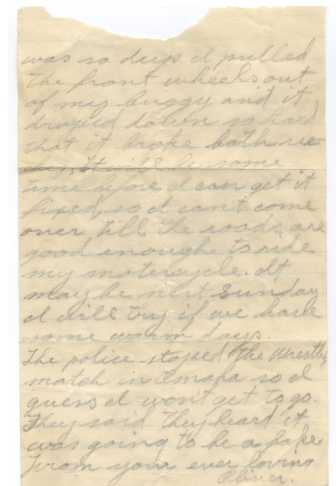 was so deep I pulled
the front wheels out
of my buggy and it
droped down so hard
that it broke both
It will be some
time before I can get it
fixed so I cant come
over till the roads are
good enough to ride
my motercycle. It
may be next Sunday
I will try if we have
some warm days
The police stoped the Wrestling
match in Omaha so I
guess I wont get to go.
They said they heard it
was going to be a fake
From your ever loving
Oliver.